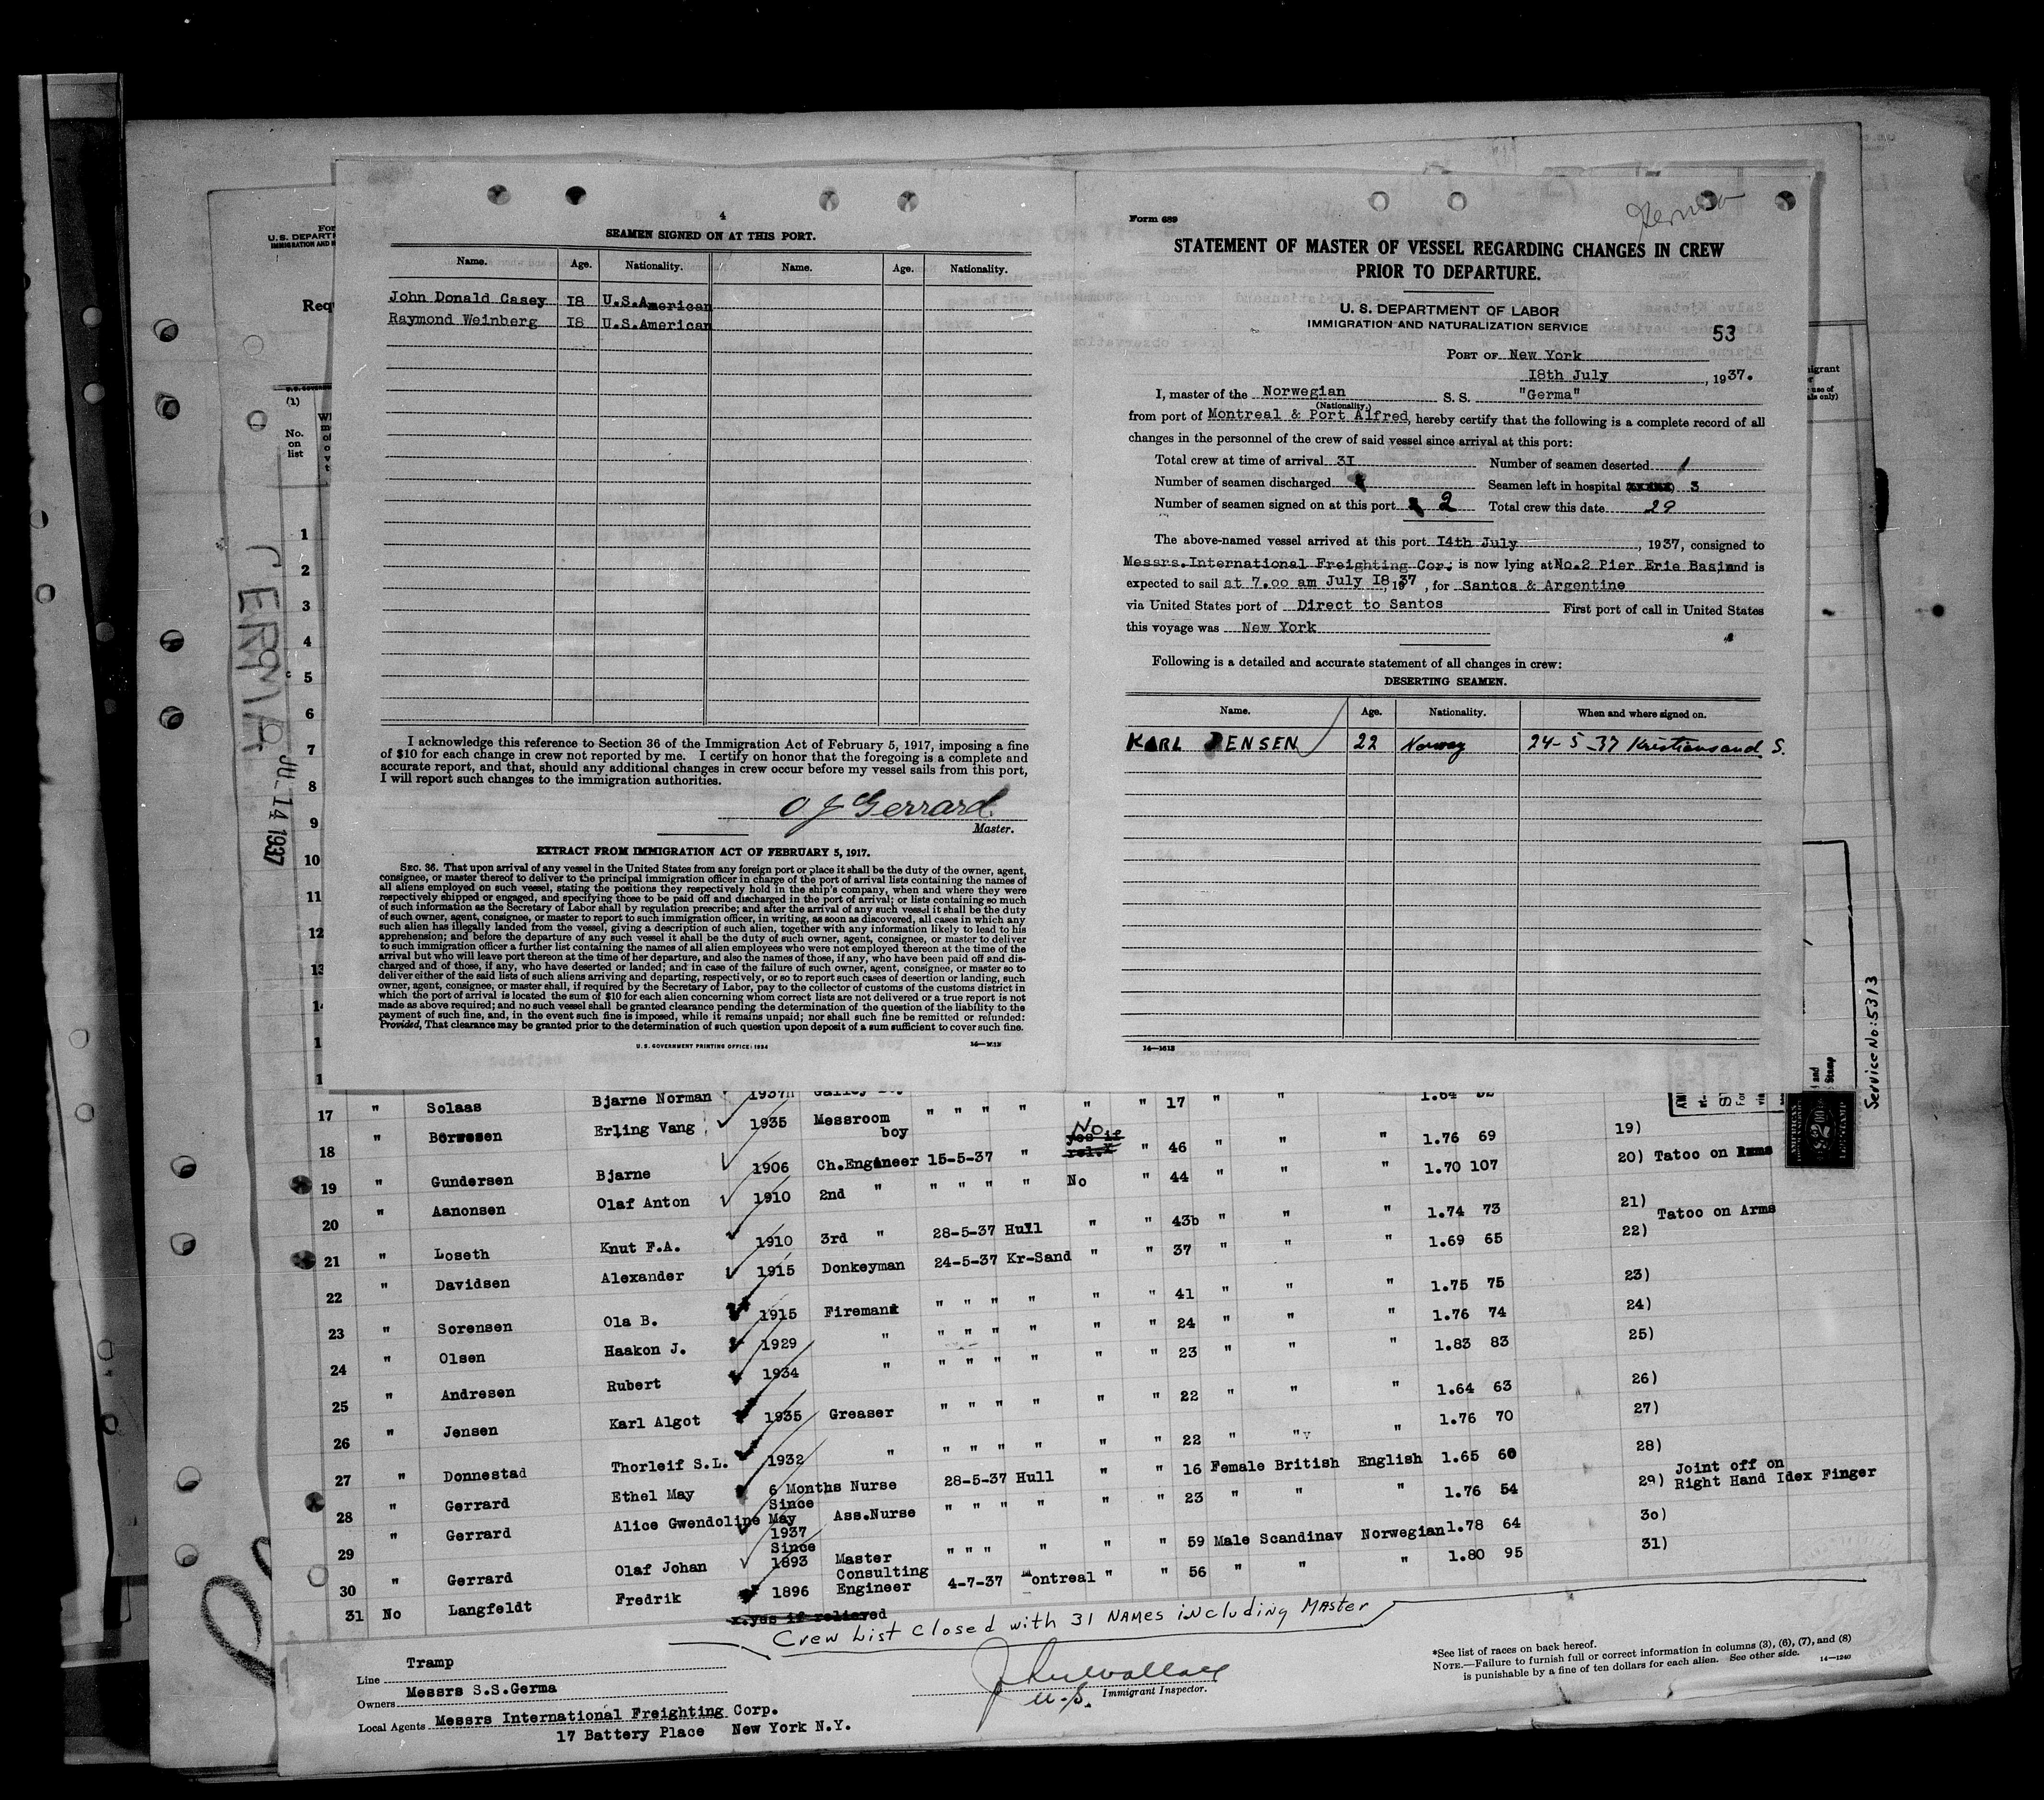 4
SEAMEN SIGNED ON AT THIS PORT.
Name. Age. Nationality. Name. Age. Nationality.
John Donald Casey 18 U.S.American
Raymond Weinberg 18 U.S.American
I acknowledge this reference to Section 36 of the Immigration Act of February 5, 1917, imposing a fine
of $10 for each change in crew not reported by me. I certify on honor that the foregoing is a complete and
accurate report, and that, should any additional changes in crew occur before my vessel sails from this port,
I will report such changes to the immigration authorities.
O J Gerrard
Master.
EXTRACT FROM IMMIGRATION ACT OF FEBRUARY 5, 1917.
SEC. 36. That upon arrival of any vessel in the United States from any foreign port or place it shall be the duty of the owner, agent,
consignee, or master thereof to deliver to the principal immigration officer in charge of the port of arrival lists containing the names of
all aliens employed on such vessel, stating the positions they respectively hold in the ship's company, when and where they were
respectively shipped or engaged, and specifying those to be paid off and discharged in the port of arrival; or lists containing so much
of such information as the Secretary of Labor shall by regulation prescribe; and after the arrival of any such vessel it shall be the duty
of such owner, agent, consignee, or master to report to such immigration officer, in writing, as soon as discovered, all cases in which any
such alien has illegally landed from the vessel, giving a description of such alien, together with any information likely to lead to his
apprehension; and before the departure of any such vessel it shall be the duty of such owner, agent, consignee, or master to deliver
to such immigration officer a further list containing the names of all alien employees who were not employed thereon at the time of the
arrival but who will leave port thereon at the time of her departure, and also the names of those, if any, who have been paid off and dis-
charged and of those, if any, who have deserted or landed; and in case of the failure of such owner, agent, consignee, or master so to
deliver either of the said lists of such aliens arriving and departing, respectively, or so to report such cases of desertion or landing, such
owner, agent, consignee, or master shall, if required by the Secretary of Labor, pay to the collector of customs of the customs district in
which the port of arrival is located the sum of $10 for each alien concerning whom correct lists are not delivered or a true report is not
made as above required; and no such vessel shall be granted clearance pending the determination of the question of the liability to the
payment of such fine, and, in the event such fine is imposed, while it remains unpaid; nor shall such fine be remitted or refunded:
Provided, That clearance may be granted prior to the determination of such question upon deposit of a sum sufficient to cover such fine.
U. S. GOVERNMENT PRINTING OFFICE: 1934 14—1613
Form 689
STATEMENT OF MASTER OF VESSEL REGARDING CHANGES IN CREW
PRIOR TO DEPARTURE.
U. S. DEPARTMENT OF LABOR
IMMIGRATION AND NATURALIZATION SERVICE
53
PORT OF New York
18th July, 1937.
I, master of the Norwegian S. S. "Germa"
(Nationality.)
from port of Montreal & Port Alfred, hereby certify that the following is a complete record of all
changes in the personnel of the crew of said vessel since arrival at this port:
Total crew at time of arrival 31 Number of seamen deserted 1
Number of seamen discharged Seamen left in hospital 3
Number of seamen signed on at this port 2 Total crew this date 29
The above-named vessel arrived at this port 14th July, 1937, consigned to
Messrs.International Freighting Cor. is now lying at No.2 Pier Erie Basin and is
expected to sail at 7.00 am July 18, 1937, for Santos & Argentine
via United States port of Direct to Santos First port of call in United States
this voyage was New York
Following is a detailed and accurate statement of all changes in crew:
DESERTING SEAMEN.
Name. Age. Nationality. When and where signed on.
KARL JENSEN 22 Norway 24-5-37 Kristiansand S.
14—1613
For
U. S. DEPART
IMMIGRATION AND N
Req
(1)
No.
on
list
1
2
3
4
5
6
7
8
9
10
11
12
13
14
GERMA
JUL 14 1937
Service No: 5313
17 " Solaas Bjarne Norman 1937 " 17 " " " 1.64
18 " Borwesen Erling Vang 1935 Messroom boy " " " " No yes if rel.x " 46 " " " 1.76 69 19)
19 " Gundersen Bjarne 1906 Ch.Engineer 15-5-37 " " 44 " " " 1.70 107 20) Tatoo on Arms
20 " Aanonsen Olaf Anton 1910 2nd " " " " " No " 43b " " " 1.74 73 21)
21 " Loseth Knut F.A. 1910 3rd " 28-5-37 Hull " " 37 " " " 1.69 65 22) Tatoo on Arms
22 " Davidsen Alexander 1915 Donkeyman 24-5-37 Kr-Sand " " 41 " " " 1.75 75 23)
23 " Sorensen Ola B. 1915 Fireman " " " " " " 24 " " " 1.76 74 24)
24 " Olsen Haakon J. 1929 " " " " " " " 23 " " " 1.83 83 25)
25 " Andresen Rubert 1934 " " " " " " " 22 " " " 1.64 63 26)
26 " Jensen Karl Algot 1935 Greaser " " " " " " 22 " " " 1.76 70 27)
27 " Donnestad Thorleif S.L. 1932 " " " " " " " 16 Female British English 1.65 60 28)
28 " Gerrard Ethel May 6 Months Nurse 28-5-37 Hull " " 23 " " " 1.76 54 29) Joint off on Right Hand Idex Finger
29 " Gerrard Alice Gwendoline Since May 1937 Ass.Nurse " " " " " " 59 Male Scandinav Norwegian 1.78 64 30)
30 " Gerrard Olaf Johan Since 1893 Master " " " " " " 56 " " " 1.80 95 31)
31 No Langfeldt Fredrik 1896 Consulting Engineer 4-7-37 Montreal "
x.yes if relieved
Crew List Closed with 31 NAMES including MASTER
Line Tramp
Owners Messrs S.S.Germa
Local Agents Messrs International Freighting Corp.
17 Battery Place New York N.Y.
U.S. Immigrant Inspector.
*See list of races on back hereof.
NOTE.—Failure to furnish full or correct information in columns (3), (6), (7), and (8)
is punishable by a fine of ten dollars for each alien. See other side. 14—1240